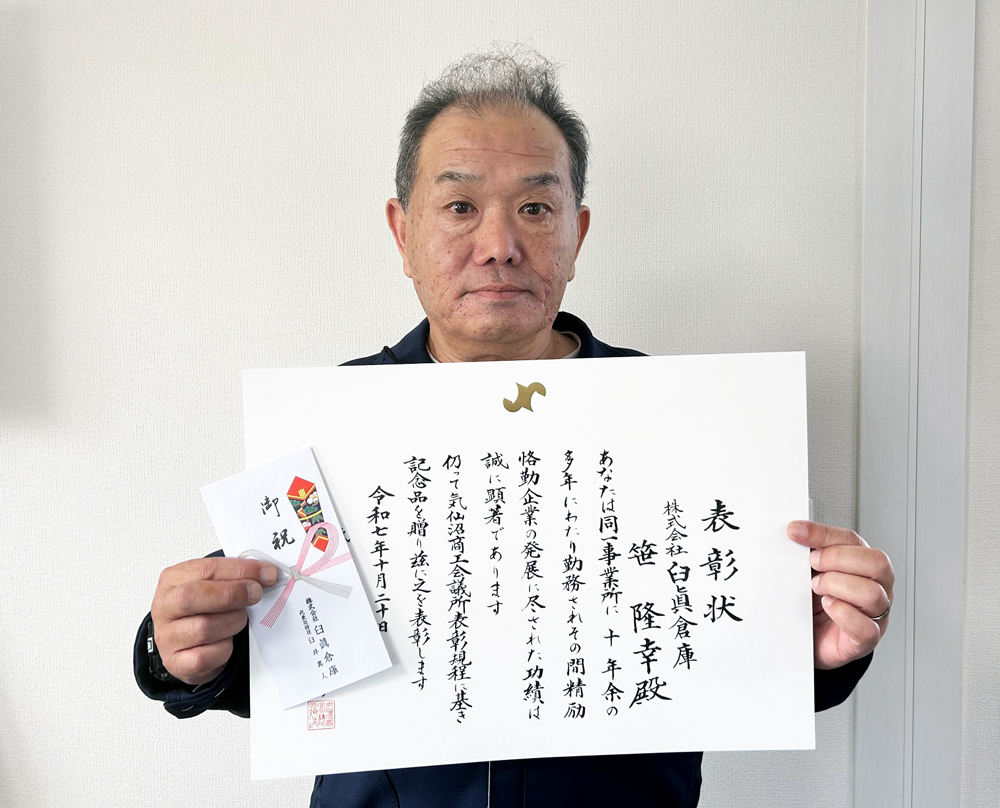 表彰状
株式会社 臼眞倉庫
笹 隆幸殿
あなたは同一事業所に 十 年余の
多年にわたり勤務されその間精励
恪勤企業の発展に尽された功績は
誠に顕著であります
仍って気仙沼商工会議所表彰規程に基き
記念品を贈り玆に之を表彰します
令和七年十月二十日
御祝
株式会社 臼眞倉庫
代表取締役 臼井真人